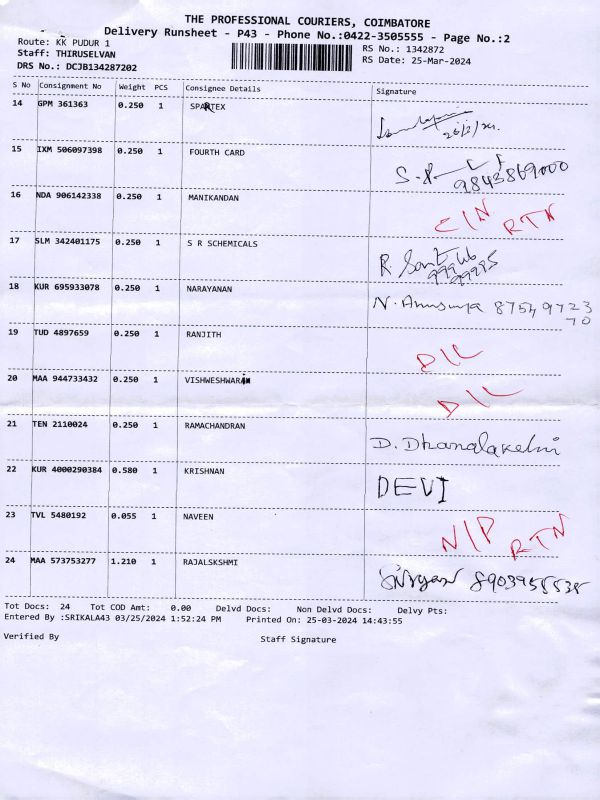 THE PROFESSIONAL COURIERS, COIMBATORE
Delivery Runsheet - P43 - Phone No.:0422-3505555 - Page No.:2
Route: KK PUDUR 1
RS No.: 1342872
Staff: THIRUSELVAN
RS Date: 25-Mar-2024
DRS No.: DCJB134287202
S No Consignment No Weight PCS Consignee Details Signature
14 GPM 361363 0.250 1 SPARTEX
15 IXM 506097398 0.250 1 FOURTH CARD
9843869000
16 NDA 906142338 0.250 1 MANIKANDAN
C/N RTN
17 SLM 342401175 0.250 1 S R SCHEMICALS
18 KUR 695933078 0.250 1 NARAYANAN N. Anusuya 87549723
70
19 TUD 4897659 0.250 1 RANJITH
D/L
20 MAA 944733432 0.250 1 VISHWESHWARAN
D/L
21 TEN 2110024 0.250 1 RAMACHANDRAN
D. Dhanalakshmi
22 KUR 4000290384 0.580 1 KRISHNAN
DEVI
23 TVL 5480192 0.055 1 NAVEEN
N/P RTN
24 MAA 573753277 1.210 1 RAJALSKSHMI
8903955538
Tot Docs: 24 Tot COD Amt: 0.00 Delvd Docs: Non Delvd Docs: Delvy Pts:
Entered By :SRIKALA43 03/25/2024 1:52:24 PM Printed On: 25-03-2024 14:43:55
Verified By Staff Signature